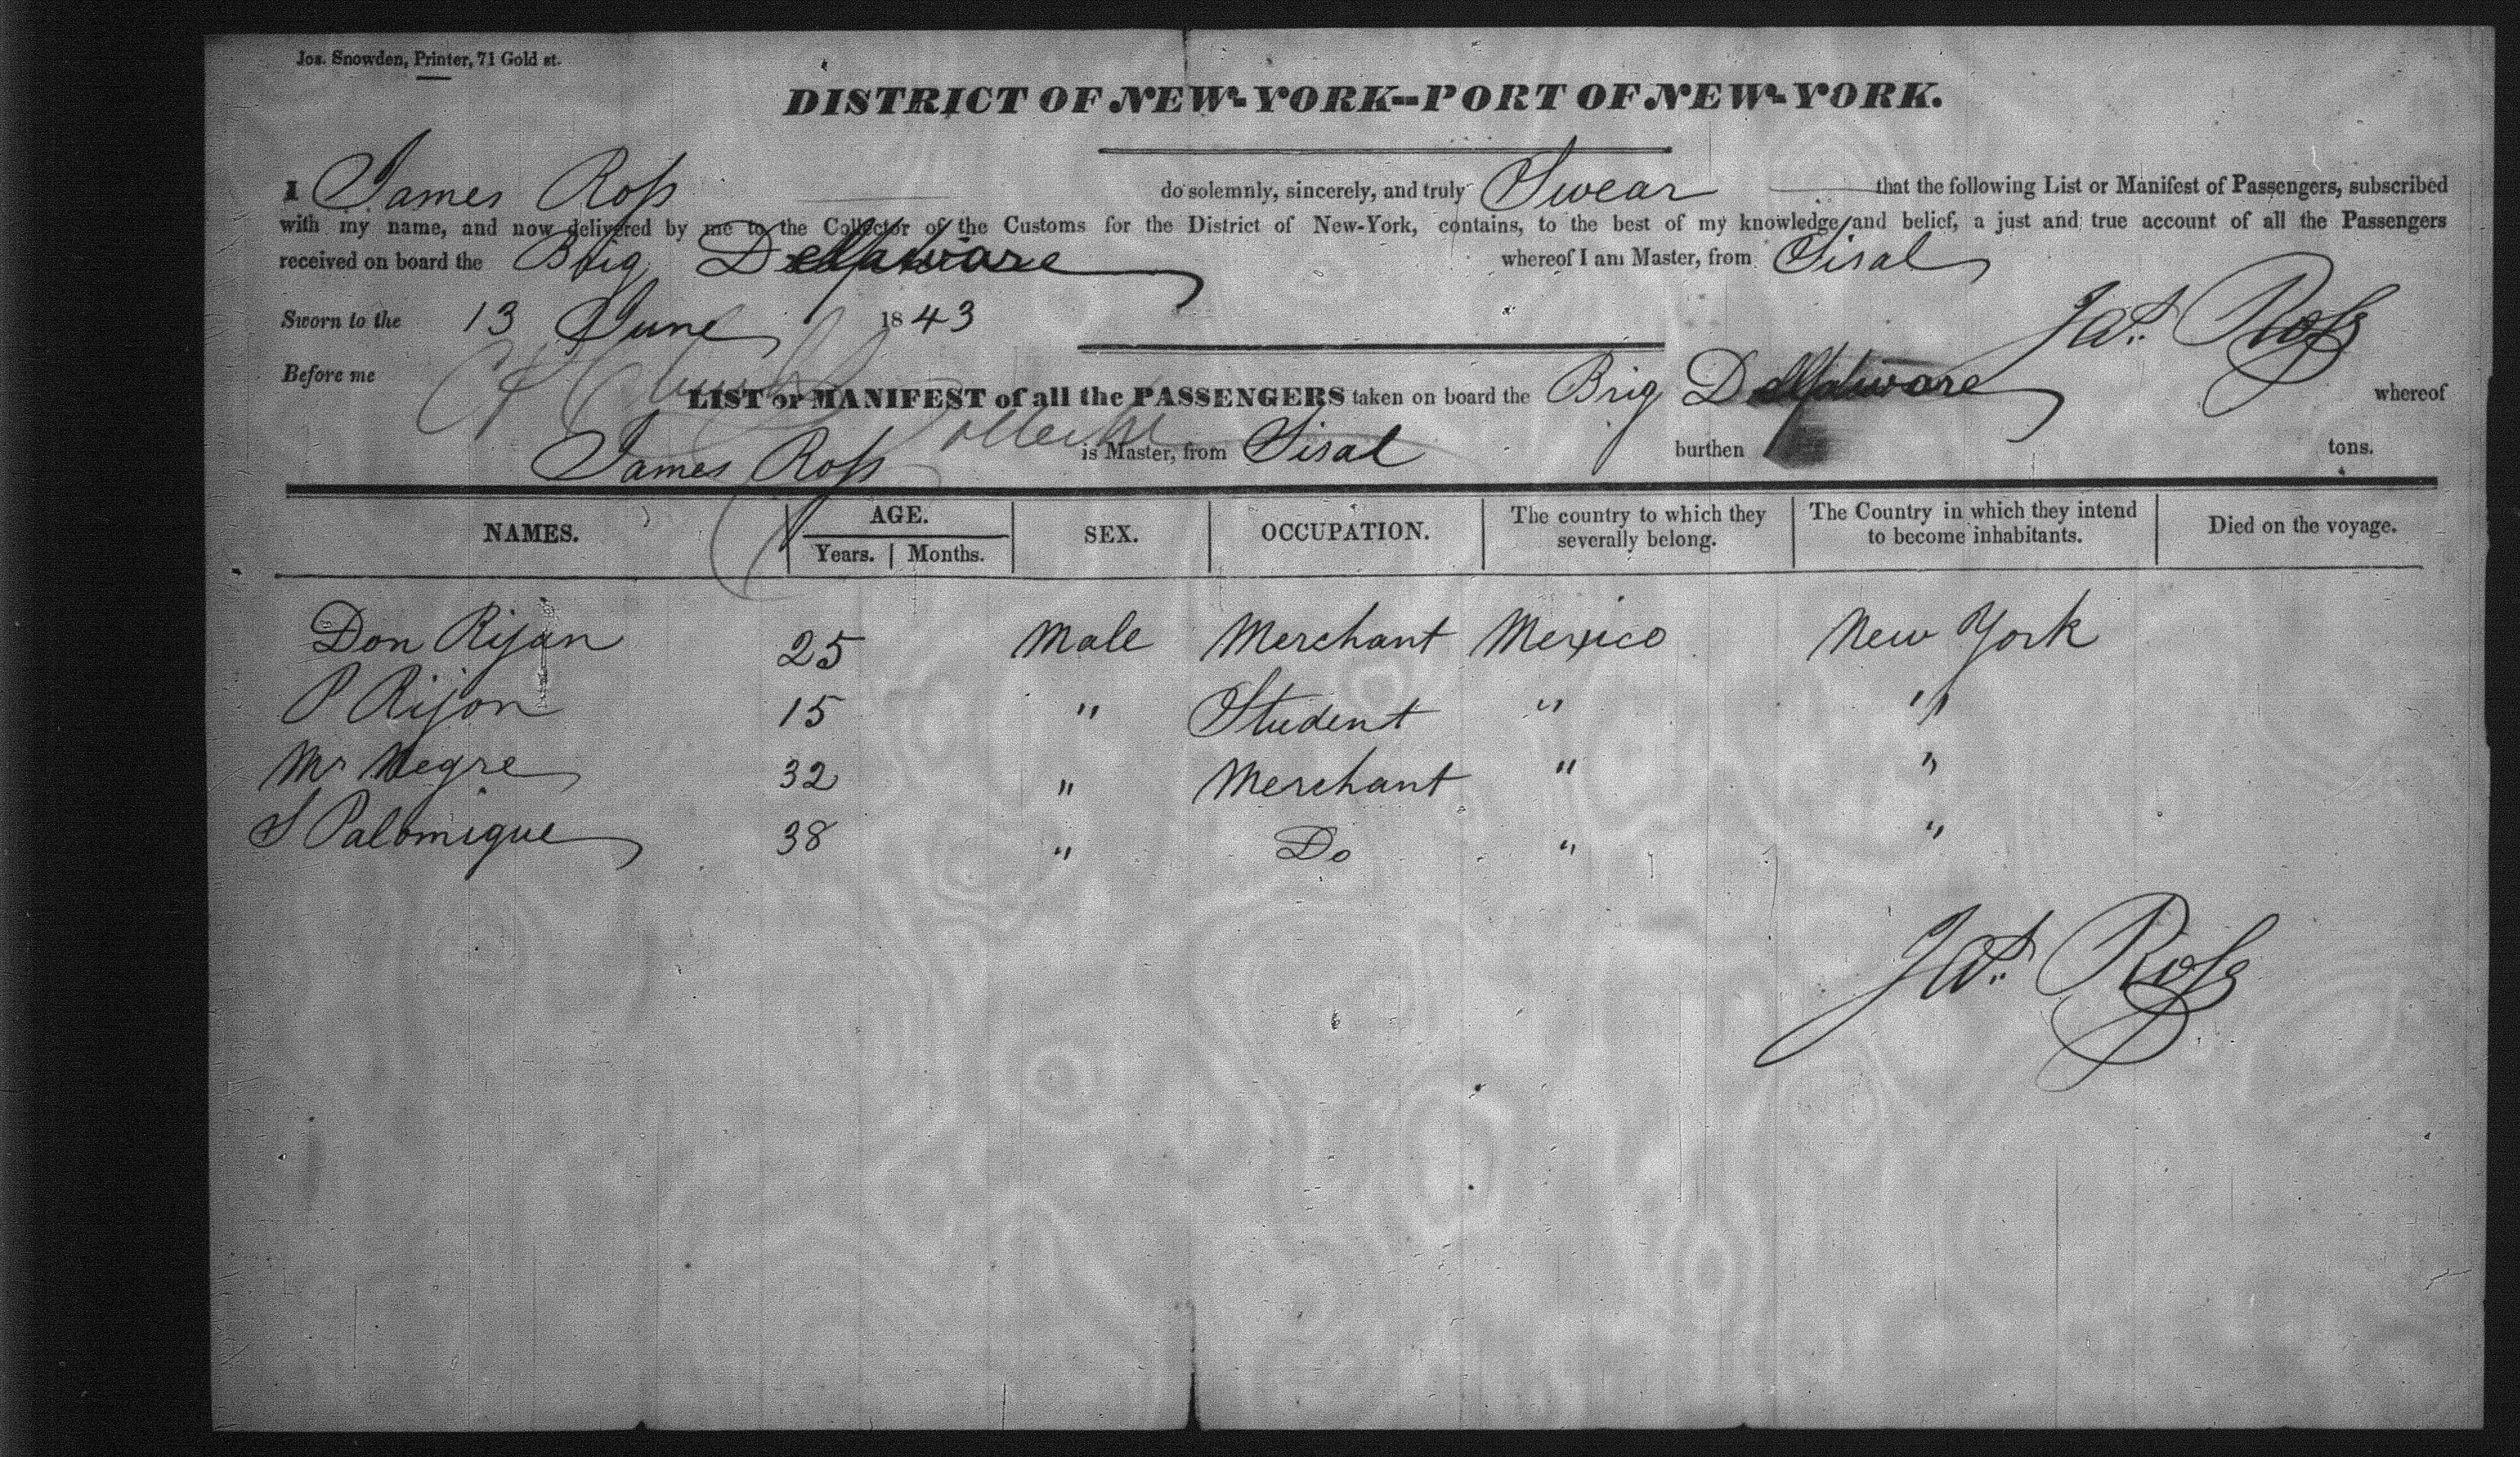 Jos. Snowden, Printer, 71 Gold st.
DISTRICT OF NEW-YORK--PORT OF NEW-YORK.
I James Ross do solemnly, sincerely, and truly Swear that the following List or Manifest of Passengers, subscribed
with my name, and now delivered by me to the Collector of the Customs for the District of New-York, contains, to the best of my knowledge and belief, a just and true account of all the Passengers
received on board the Brig Delaware whereof I am Master, from Sisal
Sworn to the 13 June 1843 Jas. Ross
Before me
LIST or MANIFEST of all the PASSENGERS taken on board the Brig Delaware whereof
James Ross is Master, from Sisal burthen tons.
NAMES. AGE. Years. Months. SEX. OCCUPATION. The country to which they severally belong. The Country in which they intend to become inhabitants. Died on the voyage.
Don Rijon 25 Male Merchant Mexico New York
P Rijon 15 " Student " "
Mr Negre 32 " Merchant " "
S Palomique 38 " Do " "
Jas. Ross